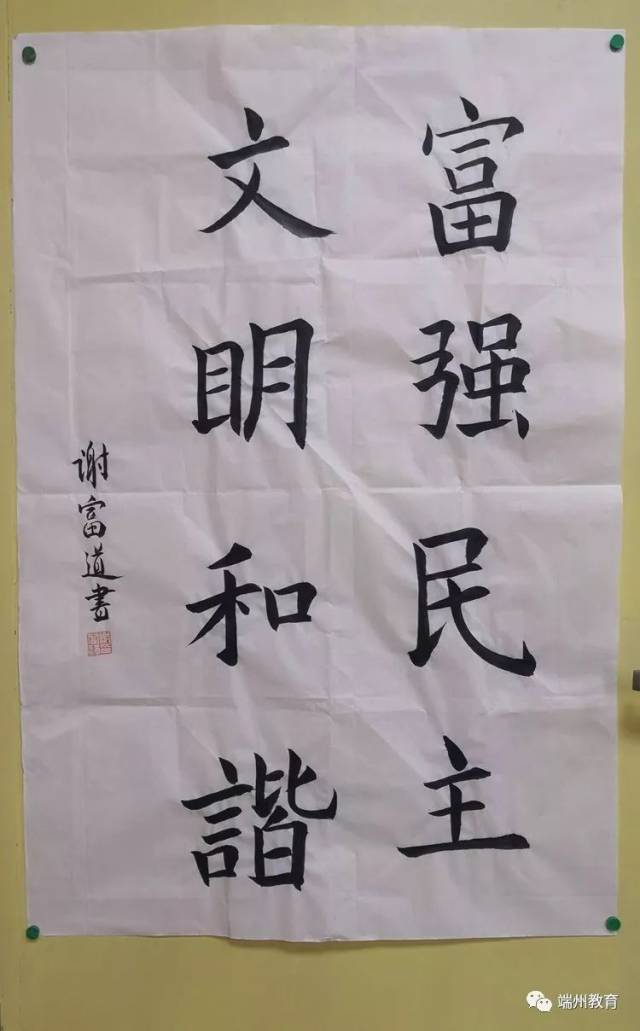 富强民主
文眀和諧
谢富道書
端州教育